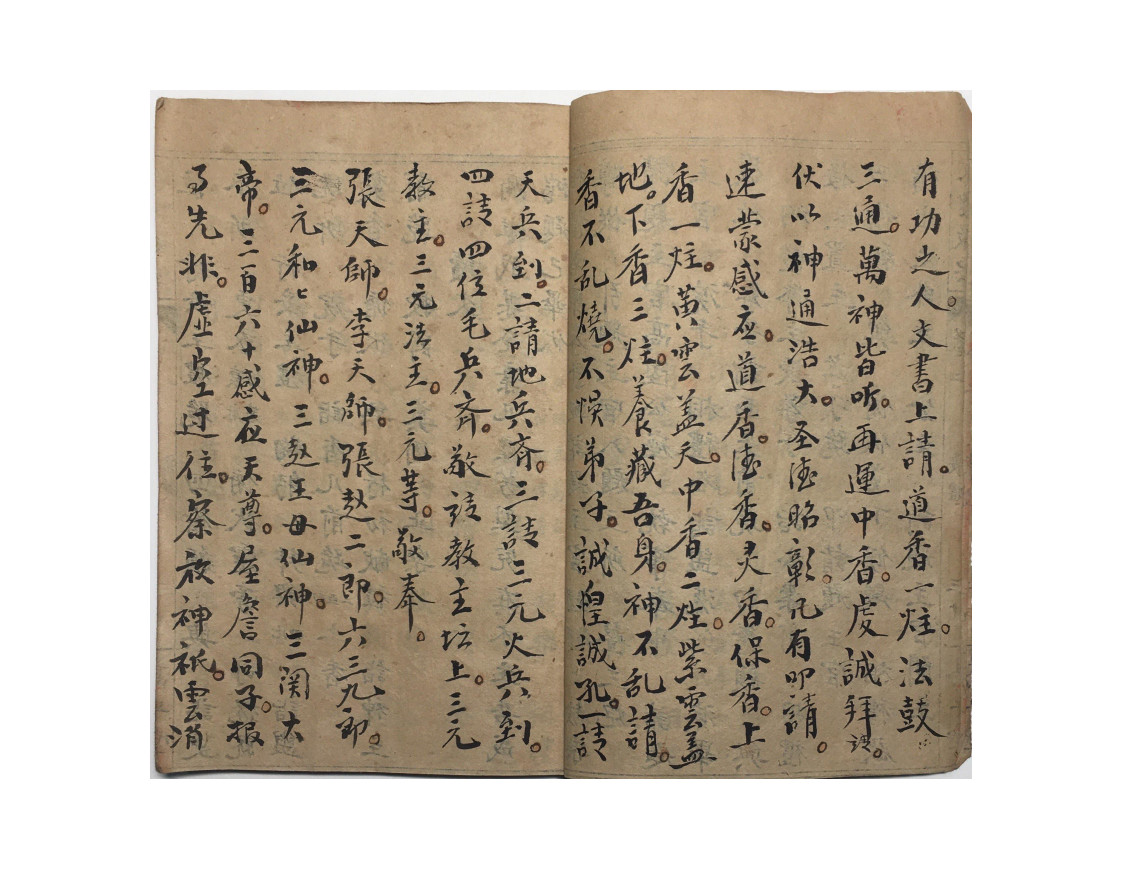 有功之人。文書上請。道香一炷。法鼓
三通。萬神皆听。再運中香。虔誠拜請。
伏以神通浩大。圣德昭彰。凡有叩請。
速蒙感应。道香。德香。灵香。保香。上
香一炷。黄雲盖天。中香二炷。紫雲盖
地。下香三炷。養藏吾身。神不乱請。
香不乱燒。不悞弟子。誠惶誠孔。一請
天兵到。二請地兵齐。三請三元火兵到。
四請四位毛兵齐。敬請教主坛上。三元
教主。三元法主。三元等。敬奉。
張天師。李天師。張趙二郎。六三九郎。
三元和匕仙神。三赵王母仙神。三関大
帝。三百六十感应天尊。屋詹同子。报
事先非。虚空过往。察放神祇。雲消